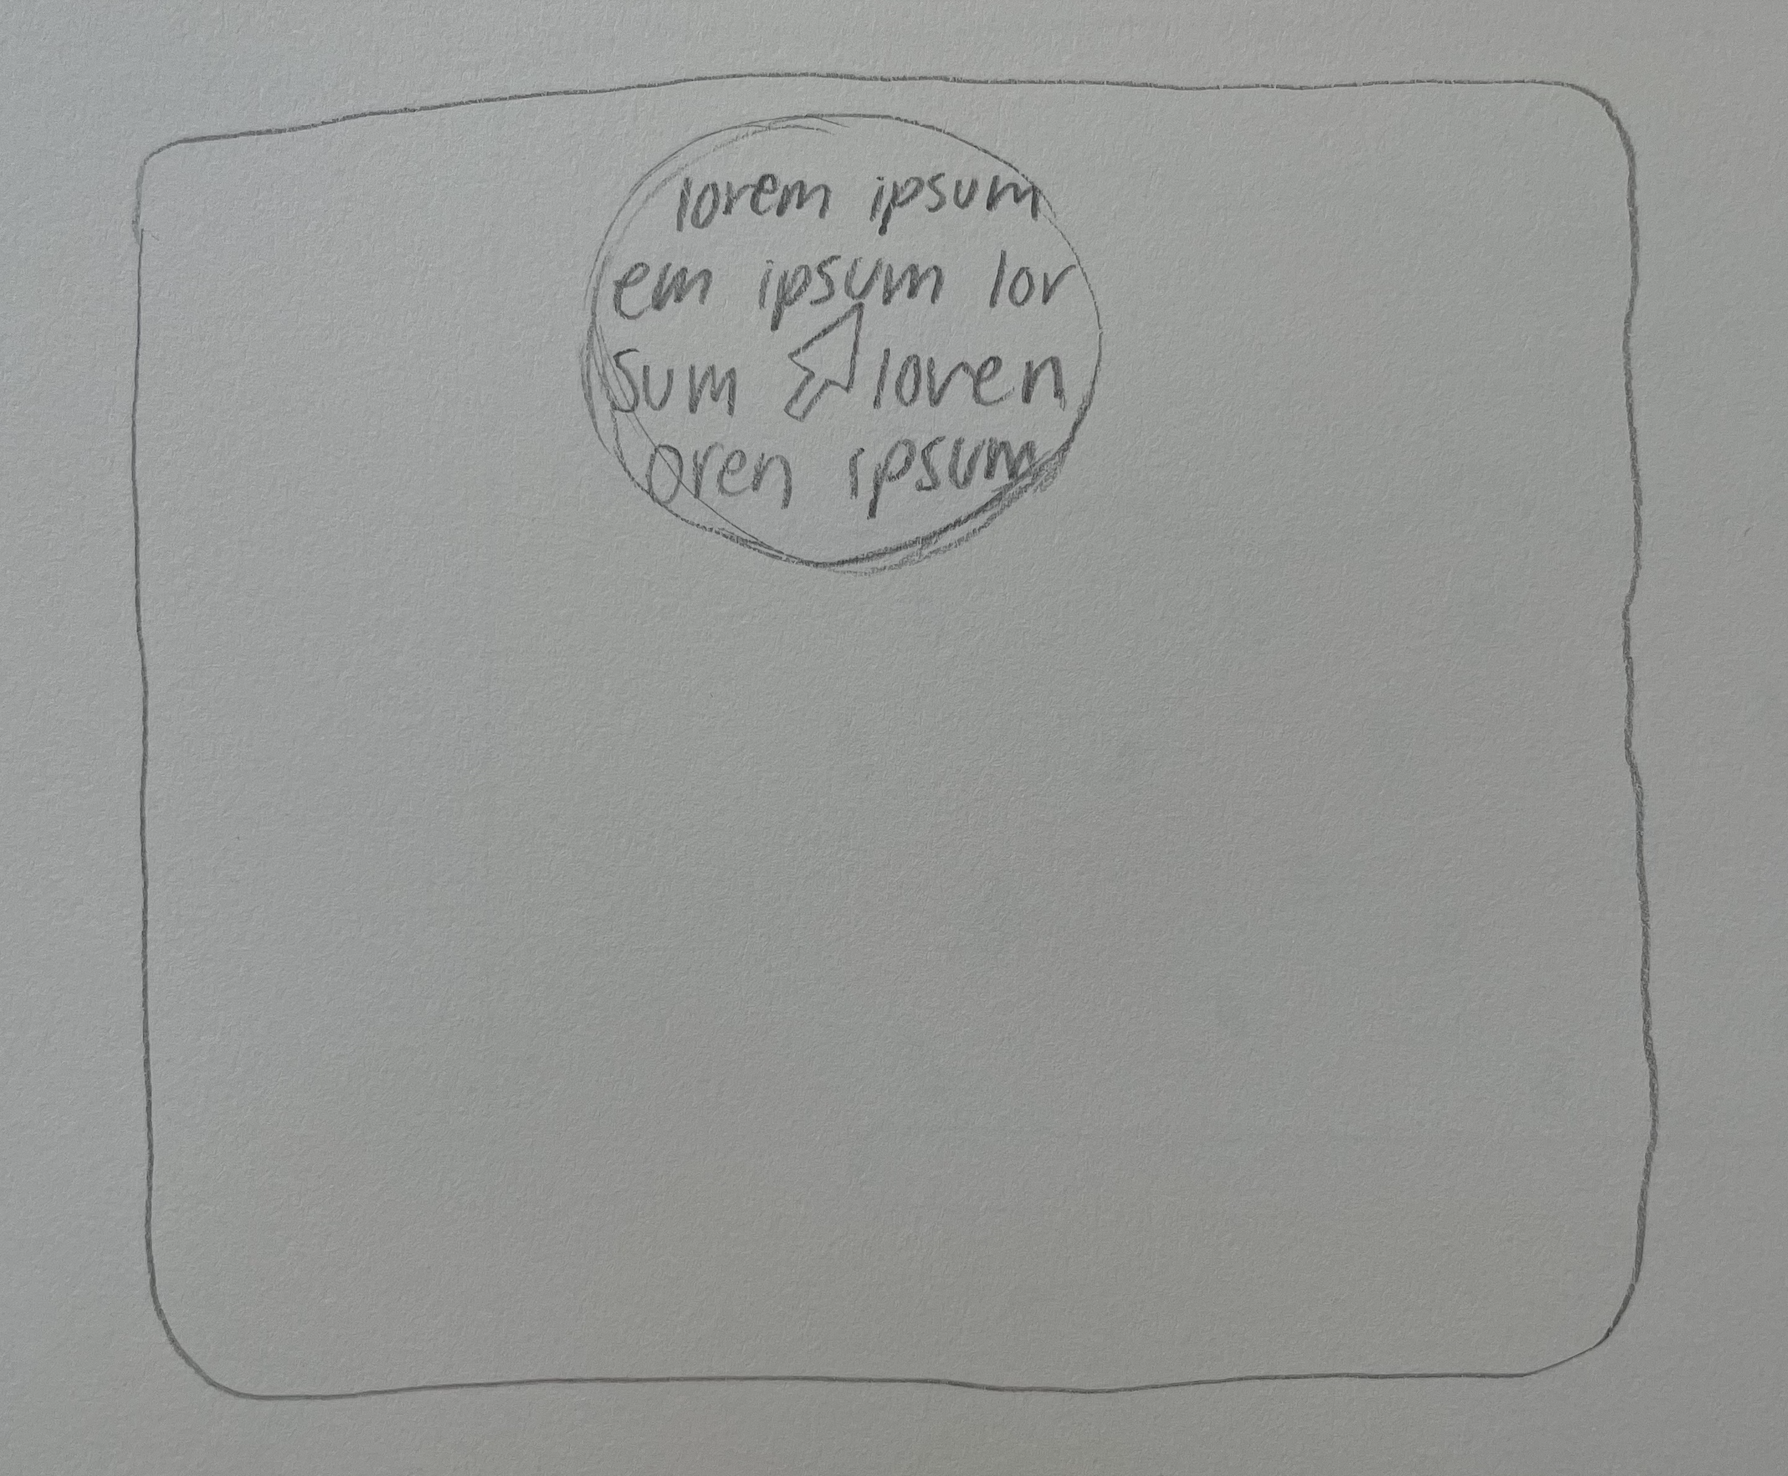 lorem ipsum
em ipsum lor
sum loren
oren ipsum